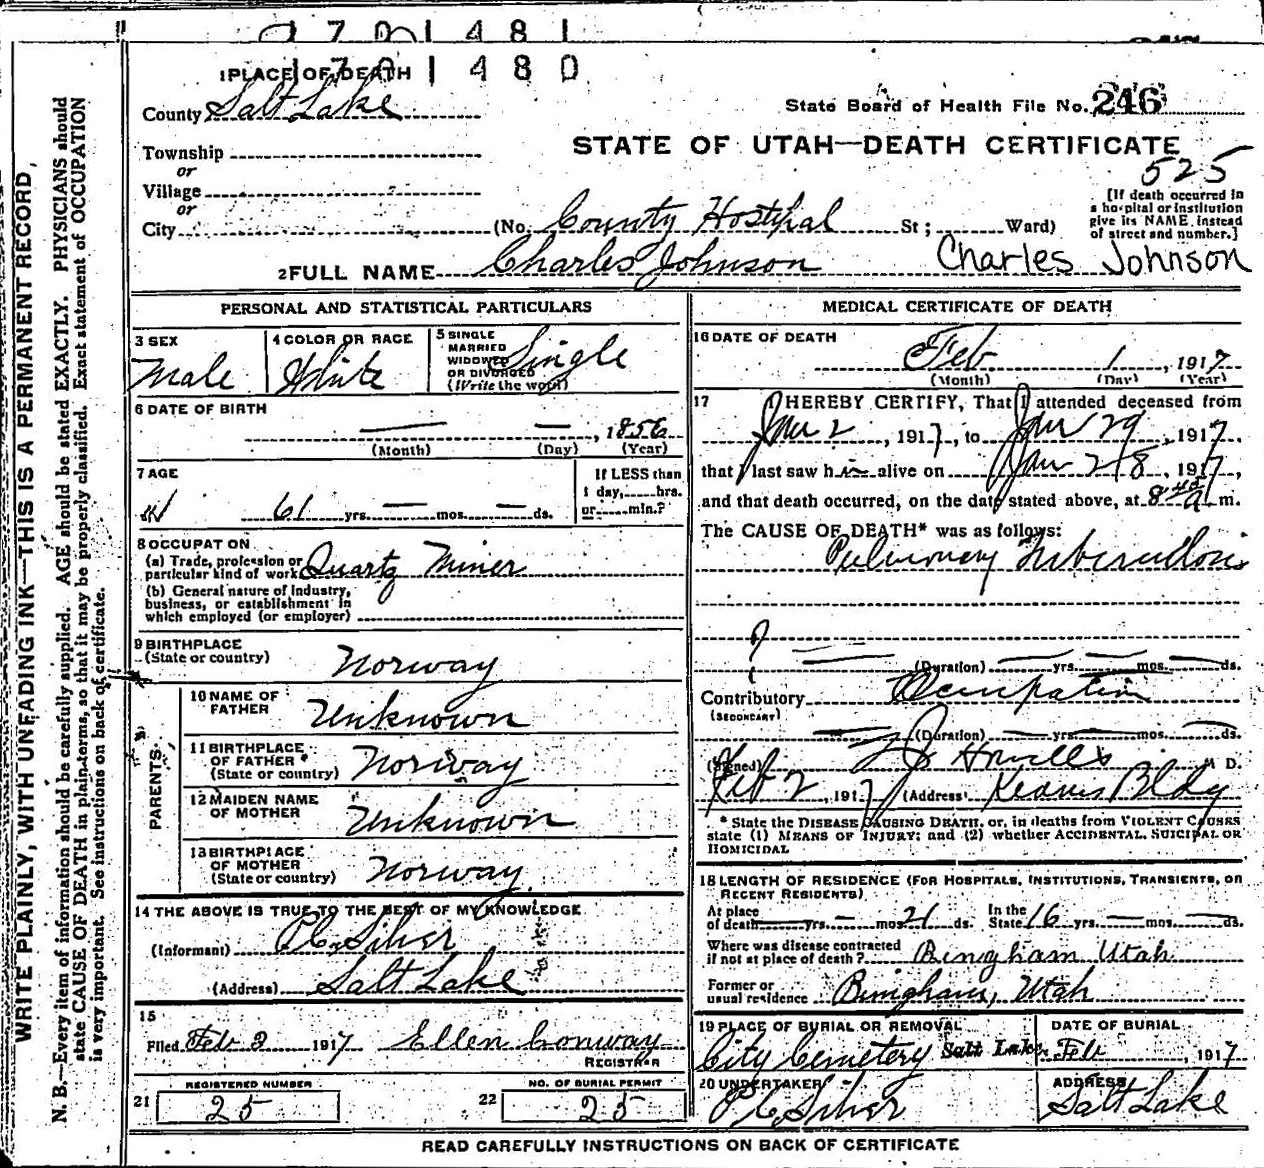 1 7 0 1 4 8 1
1 7 0 1 4 8 0
1 PLACE OF DEATH
County Salt Lake
State Board of Health File No. 246
Township
or
Village
or
City
STATE OF UTAH—DEATH CERTIFICATE
525
[If death occurred in
a hospital or institution
give its NAME instead
of street and number.]
(No. County Hostpal St; Ward)
2 FULL NAME Charles Johnson Charles Johnson
PERSONAL AND STATISTICAL PARTICULARS
3 SEX
Male
4 COLOR OR RACE
White
5 SINGLE
MARRIED
WIDOWED
OR DIVORCED
(Write the word)
Single
6 DATE OF BIRTH
— — , 1856
(Month) (Day) (Year)
7 AGE
61 yrs. — mos. — ds.
If LESS than
1 day, hrs.
or min.?
8 OCCUPATON
(a) Trade, profession or
particular kind of work Quartz Miner
(b) General nature of Industry,
business, or establishment in
which employed (or employer)
9 BIRTHPLACE
(State or country) Norway
PARENTS
10 NAME OF
FATHER Unknown
11 BIRTHPLACE
OF FATHER
(State or country) Norway
12 MAIDEN NAME
OF MOTHER Unknown
13 BIRTHPLACE
OF MOTHER
(State or country) Norway
14 THE ABOVE IS TRUE TO THE BEST OF MY KNOWLEDGE
(Informant) P C Silver
(Address) Salt Lake
15
Filed Feb 2 1917 Ellen Conway
REGISTRAR
REGISTERED NUMBER
21 25
NO. OF BURIAL PERMIT
22 25
MEDICAL CERTIFICATE OF DEATH
16 DATE OF DEATH
Feb 1 , 1917
(Month) (Day) (Year)
17 I HEREBY CERTIFY, That I attended deceased from
Jan 2 , 1917, to Jan 29 , 1917,
that I last saw him alive on Jan 28 , 1917,
and that death occurred, on the date stated above, at 8 40 a m.
The CAUSE OF DEATH* was as follows:
Pulmonary Tuberculosis
?
— — (Duration) — yrs. — mos. — ds.
Contributory Occupation
(SECONDARY)
— (Duration) — yrs. — mos. — ds.
(Signed) Howells M D.
Feb 2 , 1917 (Address) Kearns Bldg
* State the DISEASE CAUSING DEATH, or, in deaths from VIOLENT CAUSES
state (1) MEANS OF INJURY; and (2) whether ACCIDENTAL, SUICIDAL OR
HOMICIDAL
18 LENGTH OF RESIDENCE (FOR HOSPITALS, INSTITUTIONS, TRANSIENTS, OR
RECENT RESIDENTS)
At place
of death — yrs. — mos. 21 ds. In the
State 16 yrs. — mos. — ds.
Where was disease contracted
if not at place of death? Bingham Utah
Former or
usual residence Bingham, Utah
19 PLACE OF BURIAL OR REMOVAL
City Cemetery Salt Lake
DATE OF BURIAL
Feb , 1917
20 UNDERTAKER
P C Silver
ADDRESS
Salt Lake
READ CAREFULLY INSTRUCTIONS ON BACK OF CERTIFICATE
WRITE PLAINLY, WITH UNFADING INK—THIS IS A PERMANENT RECORD,
N. B.—Every item of information should be carefully supplied. AGE should be stated EXACTLY. PHYSICIANS should
state CAUSE OF DEATH in plain terms, so that it may be properly classified. Exact statement of OCCUPATION
is very important. See instructions on back of certificate.